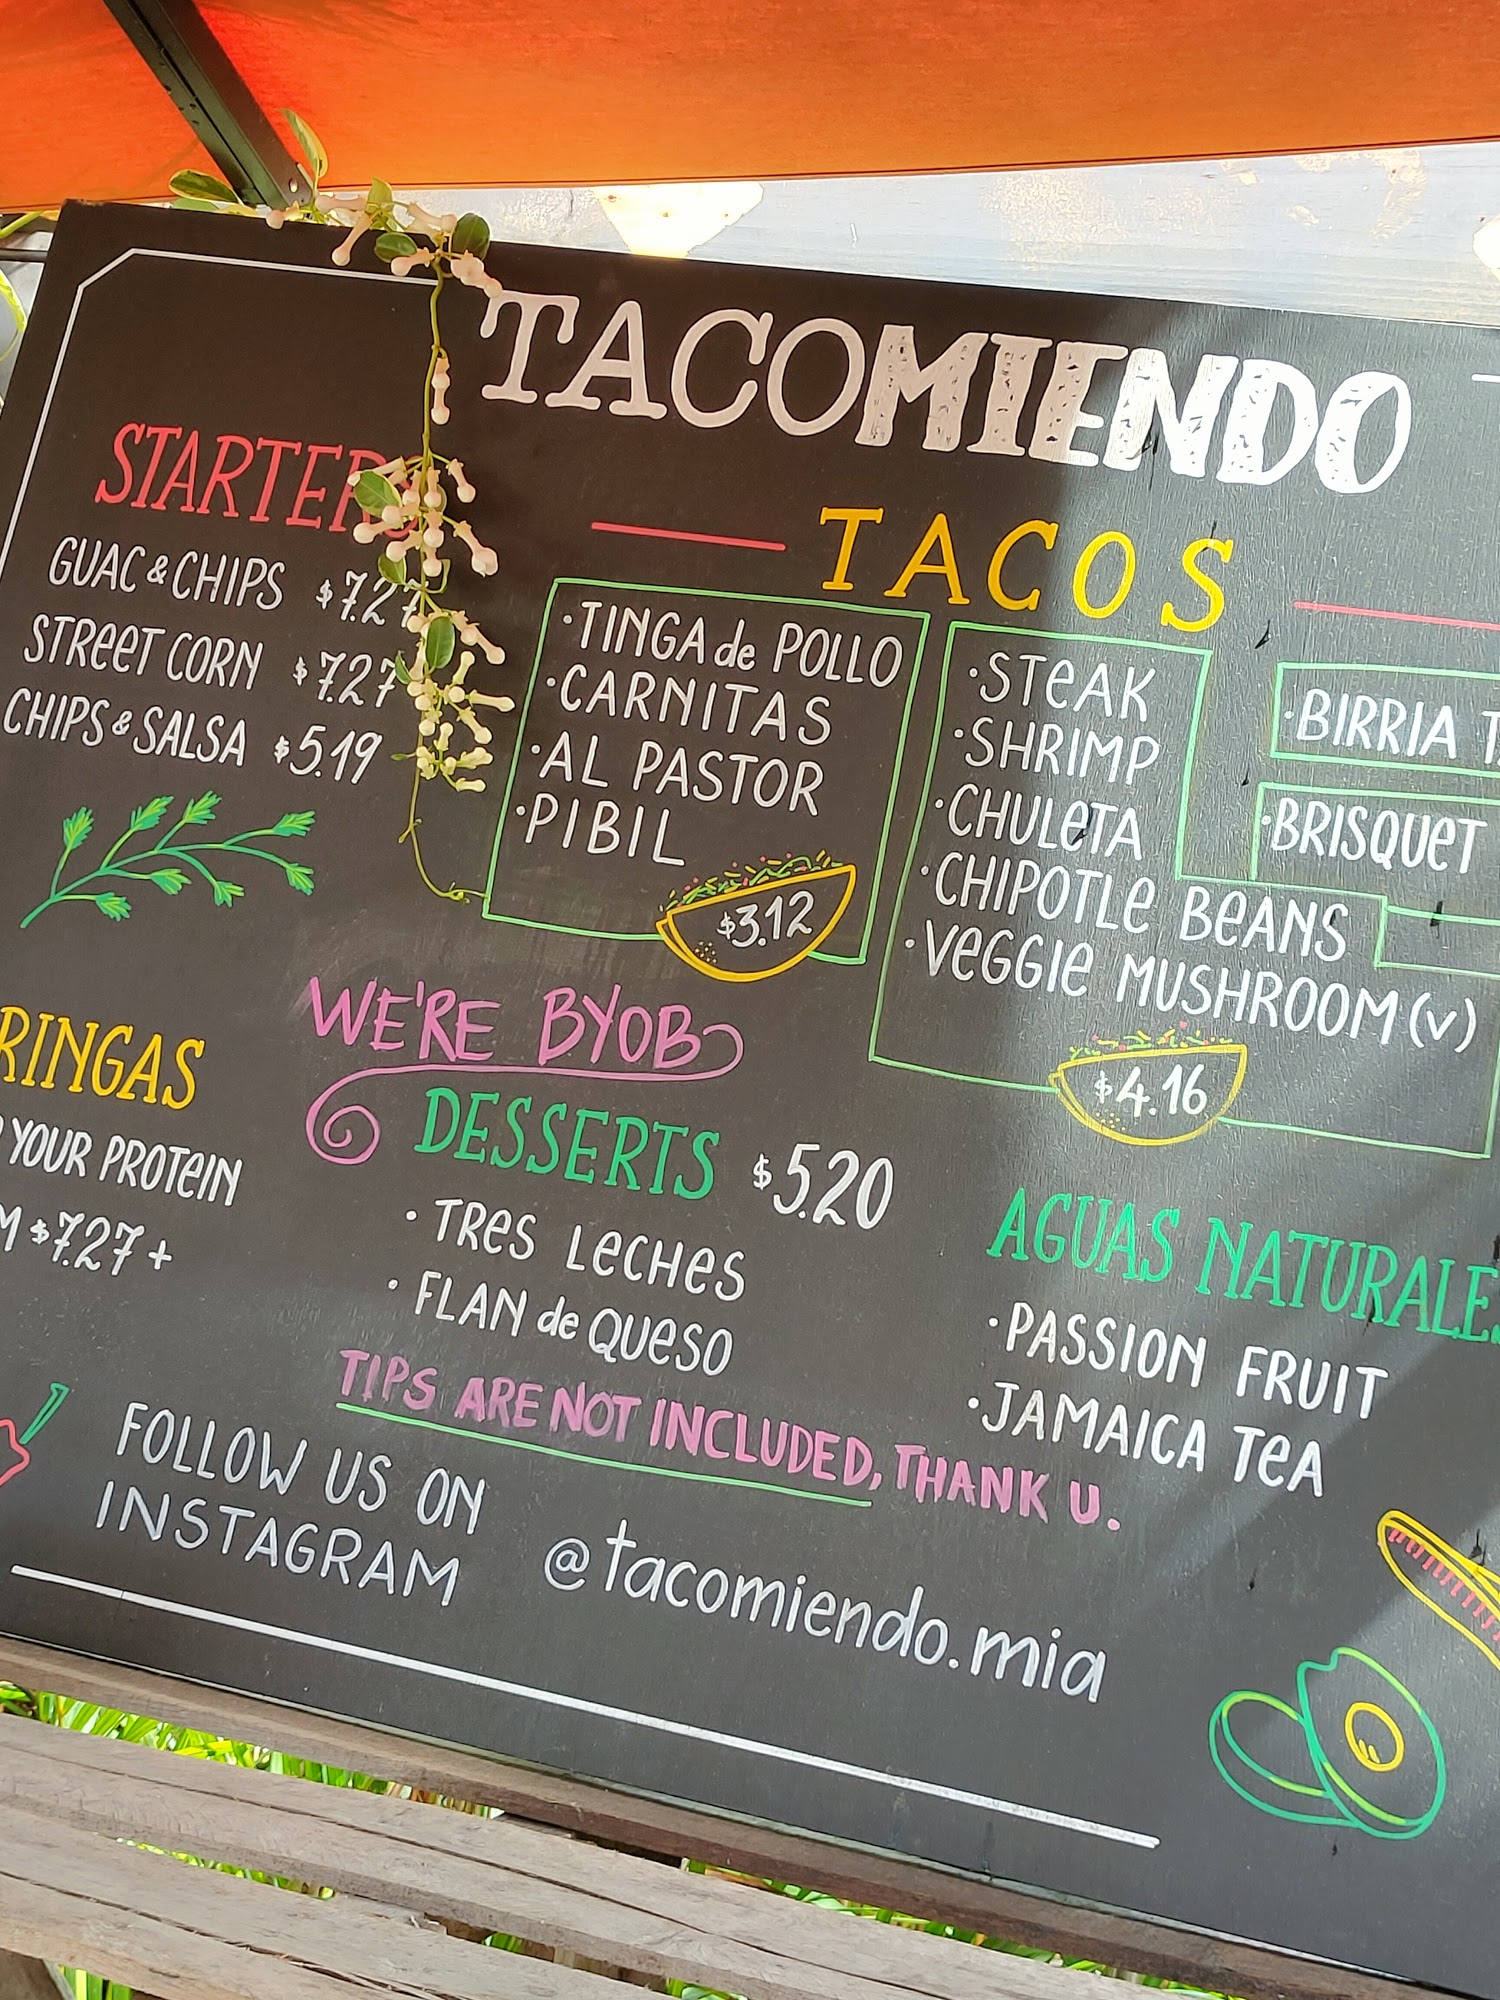 TACOMIENDO
STARTERS
GUAC & CHIPS $7.27
STREET CORN $7.27
CHIPS & SALSA $5.19
TACOS
·TINGA de POLLO
·CARNITAS
·AL PASTOR
·PIBIL
$3.12
·STEAK
·SHRIMP
·CHULETA
·CHIPOTLE BEANS
·VEGGIE MUSHROOM (V)
$4.16
·BIRRIA
·BRISQUET
WE'RE BYOB
RINGAS
YOUR PROTEIN
$7.27+
DESSERTS $5.20
· TRES LECHES
· FLAN de QUESO
AGUAS NATURALES
·PASSION FRUIT
·JAMAICA TEA
TIPS ARE NOT INCLUDED, THANK U.
FOLLOW US ON
INSTAGRAM
@tacomiendo.mia